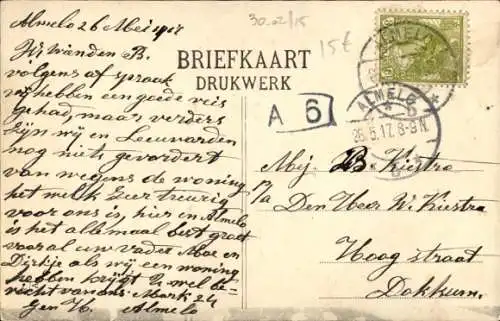 Almelo 26 Mei 1917
Bij Wanden B.
volgens af spraak
wij hebben een goede reis
gehad maar verders
zijn wij en Leeuwarden
nog niet gevordert
van weegens de woning
het welk Zeer treurig
voor ons is, hier en Almelo
is het allemaal best groet
vooral uw vader Moe en
Dirkje als wij een woning
hebben krijgt U wel be-
richt van ons. Mark 24
Gen H. Almelo
30.02/15
15€
BRIEFKAART
DRUKWERK
A 6
ALMELO
ALMELO
26.5.17.8-9N
Mej. B. Kiestra
P/a
Den Heer W. Kiestra
Hoog straat
Dokkum.